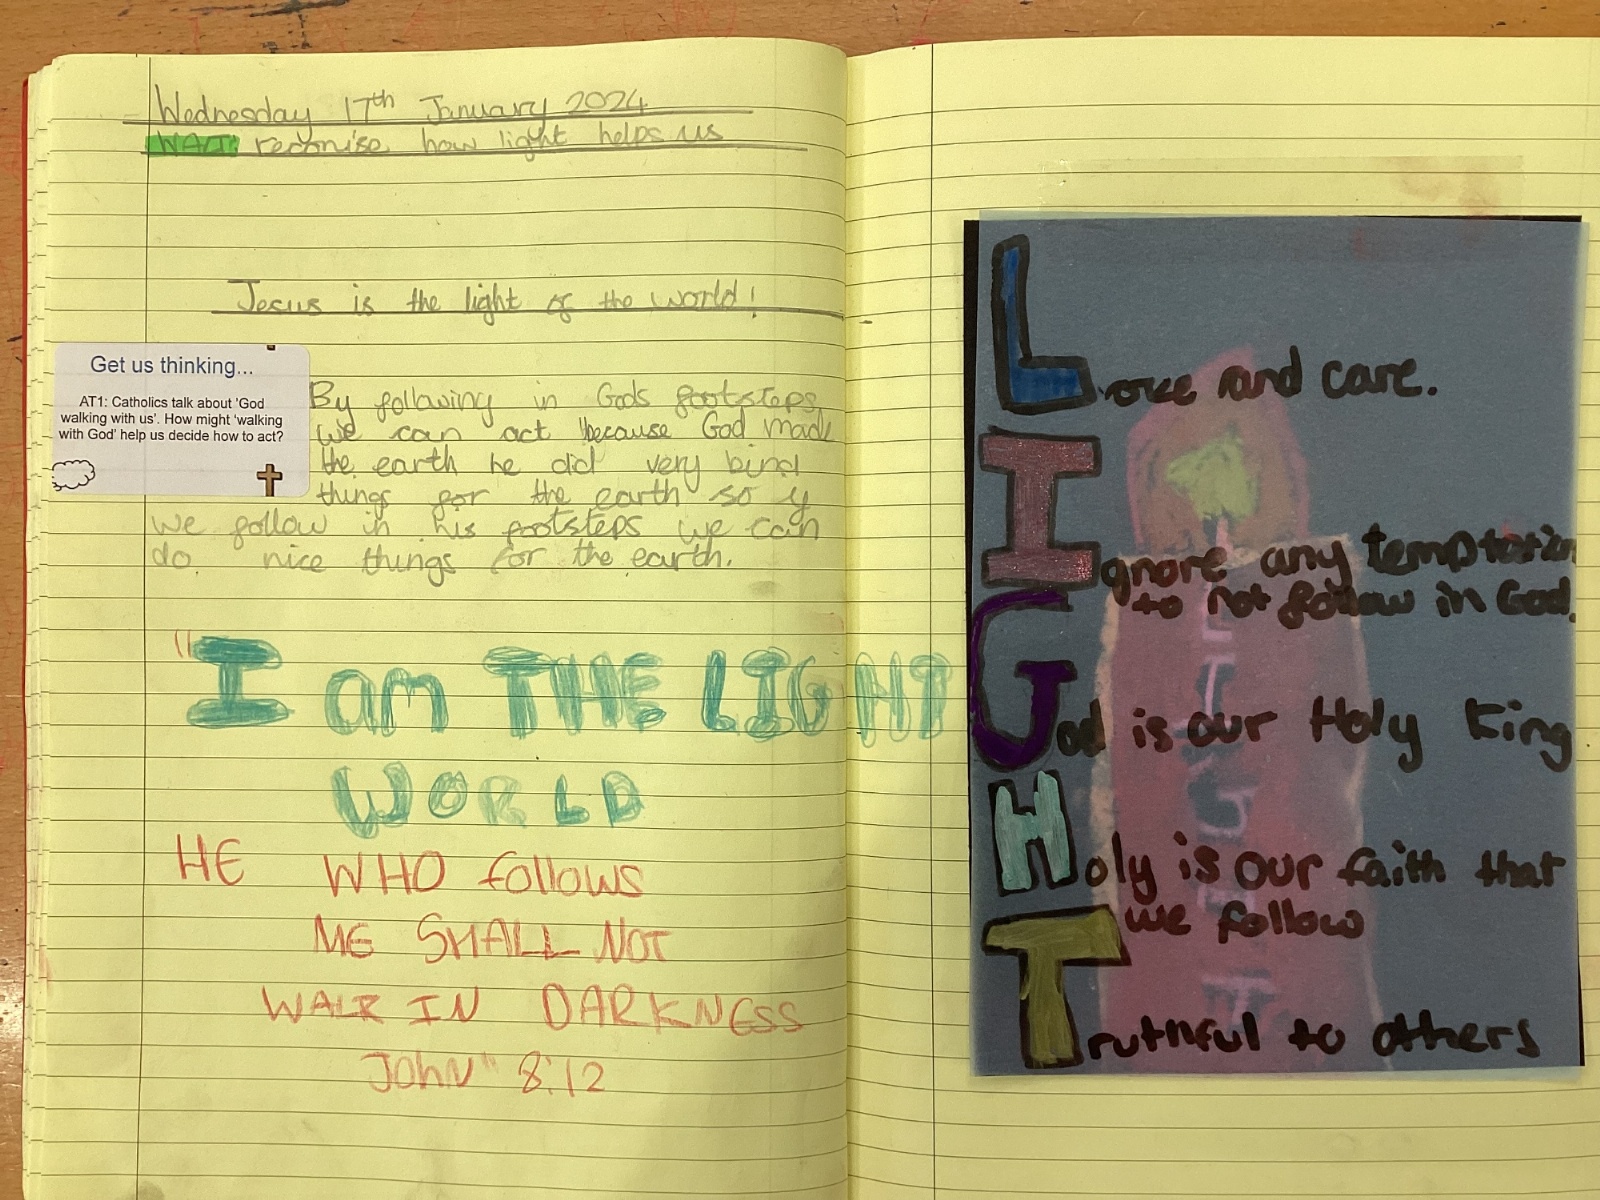 Wednesday 17th January 2024
WALT: reconise how light helps us
Jesus is the light of the world!
Get us thinking...
AT1: Catholics talk about 'God
walking with us'. How might 'walking
with God' help us decide how to act?
By following in Gods footsteps
we can act because God made
the earth he did very bind
things for the earth so if
we follow in his footsteps we can
do nice things for the earth.
"I am THE LIGHT
WORLD
HE WHO follows
ME SHALL NOT
WALK IN DARKNESS
JOHN" 8:12
Love and care.
Ignore any temptation
to not follow in God.
God is our Holy King
Holy is our faith that
we follow
Truthful to others